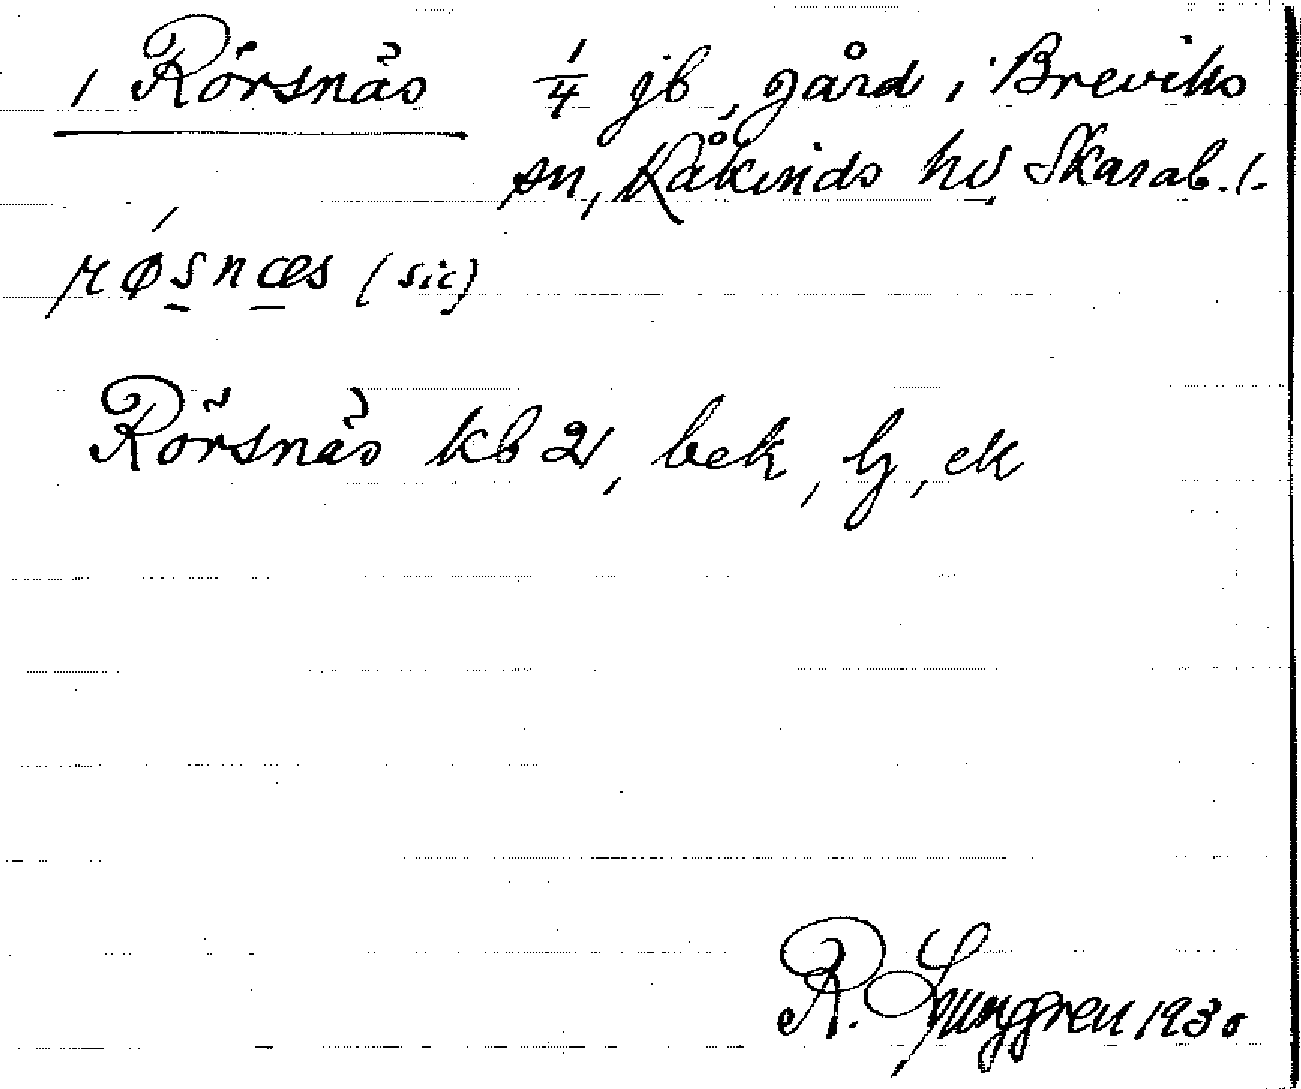 1 Rörsnäs 1/4 jb, gård i Breviks
sn, Kåkinds hd Skarab. l.
rǿsnæs (sic)
Rörsnäs kb 2, bek, lj, ek
R. Ljunggren 1930